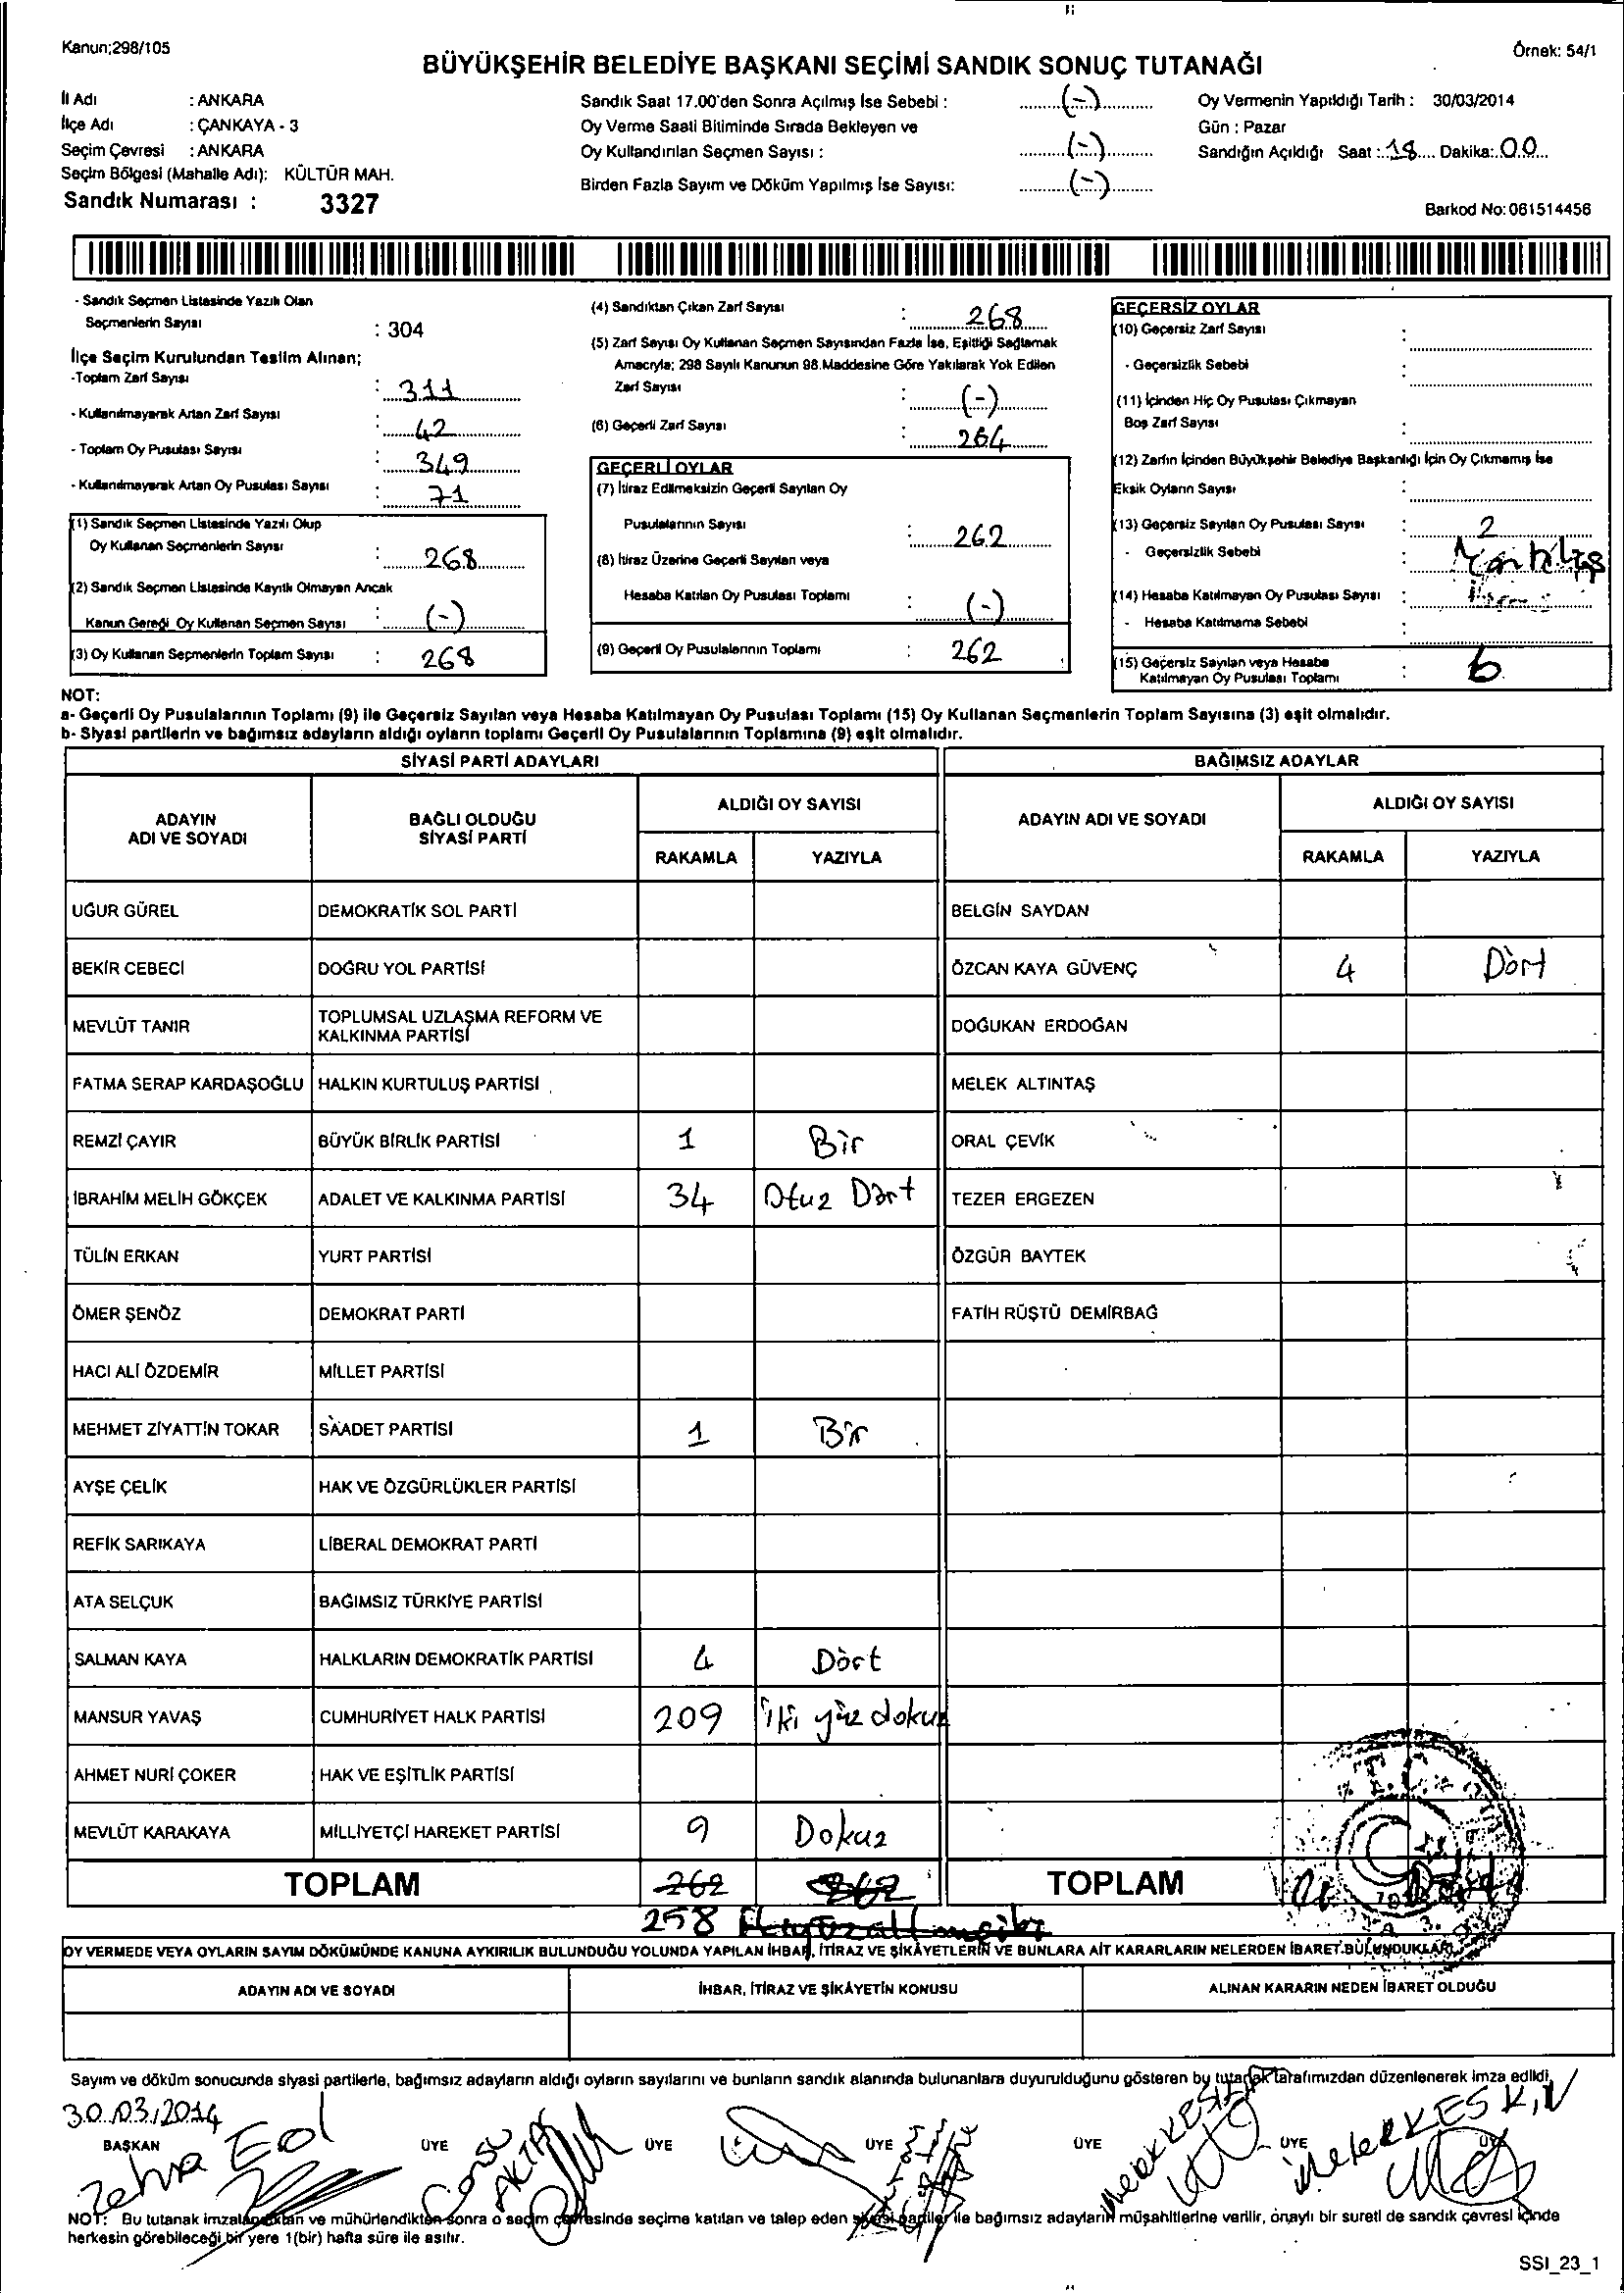 Kanun;298/105
Örnek: 54/1
BÜYÜKŞEHİR BELEDİYE BAŞKANI SEÇİMİ SANDIK SONUÇ TUTANAĞI
İl Adı : ANKARA
İlçe Adı : ÇANKAYA - 3
Seçim Çevresi : ANKARA
Seçim Bölgesi (Mahalle Adı): KÜLTÜR MAH.
Sandık Numarası : 3327
Sandık Saat 17.00'den Sonra Açılmış İse Sebebi : (-)
Oy Verme Saati Bitiminde Sırada Bekleyen ve
Oy Kullandırılan Seçmen Sayısı : (-)
Birden Fazla Sayım ve Döküm Yapılmış İse Sayısı: (-)
Oy Vermenin Yapıldığı Tarih : 30/03/2014
Gün : Pazar
Sandığın Açıldığı Saat : 18 Dakika: 00
Barkod No: 061514456
- Sandık Seçmen Listesinde Yazılı Olan
Seçmenlerin Sayısı : 304
İlçe Seçim Kurulundan Teslim Alınan;
-Toplam Zarf Sayısı : 311
- Kullanılmayarak Artan Zarf Sayısı : 42
- Toplam Oy Pusulası Sayısı : 349
- Kullanılmayarak Artan Oy Pusulası Sayısı : 71
(1) Sandık Seçmen Listesinde Yazılı Olup
Oy Kullanan Seçmenlerin Sayısı : 268
(2) Sandık Seçmen Listesinde Kayıtlı Olmayan Ancak
Kanun Gereği Oy Kullanan Seçmen Sayısı : (-)
(3) Oy Kullanan Seçmenlerin Toplam Sayısı : 268
(4) Sandıktan Çıkan Zarf Sayısı : 268
(5) Zarf Sayısı Oy Kullanan Seçmen Sayısından Fazla İse, Eşitliği Sağlamak
Amacıyla; 298 Sayılı Kanunun 98.Maddesine Göre Yakılarak Yok Edilen
Zarf Sayısı : (-)
(6) Geçerli Zarf Sayısı : 264
GEÇERLİ OYLAR
(7) İtiraz Edilmeksizin Geçerli Sayılan Oy
Pusulalarının Sayısı : 262
(8) İtiraz Üzerine Geçerli Sayılan veya
Hesaba Katılan Oy Pusulası Toplamı : (-)
(9) Geçerli Oy Pusulalarının Toplamı : 262
GEÇERSİZ OYLAR
(10) Geçersiz Zarf Sayısı :
- Geçersizlik Sebebi :
(11) İçinden Hiç Oy Pusulası Çıkmayan
Boş Zarf Sayısı :
(12) Zarfın İçinden Büyükşehir Belediye Başkanlığı İçin Oy Çıkmamış İse
Eksik Oyların Sayısı :
(13) Geçersiz Sayılan Oy Pusulası Sayısı : 2
- Geçersizlik Sebebi :
(14) Hesaba Katılmayan Oy Pusulası Sayısı :
- Hesaba Katılmama Sebebi :
(15) Geçersiz Sayılan veya Hesaba
Katılmayan Oy Pusulası Toplamı : 6
NOT:
a- Geçerli Oy Pusulalarının Toplamı (9) ile Geçersiz Sayılan veya Hesaba Katılmayan Oy Pusulası Toplamı (15) Oy Kullanan Seçmenlerin Toplam Sayısına (3) eşit olmalıdır.
b- Siyasi partilerin ve bağımsız adayların aldığı oyların toplamı Geçerli Oy Pusulalarının Toplamına (9) eşit olmalıdır.
SİYASİ PARTİ ADAYLARI BAĞIMSIZ ADAYLAR
ADAYIN ADI VE SOYADI BAĞLI OLDUĞU SİYASİ PARTİ ALDIĞI OY SAYISI ADAYIN ADI VE SOYADI ALDIĞI OY SAYISI
RAKAMLA YAZIYLA RAKAMLA YAZIYLA
UĞUR GÜREL DEMOKRATİK SOL PARTİ BELGİN SAYDAN
BEKİR CEBECİ DOĞRU YOL PARTİSİ ÖZCAN KAYA GÜVENÇ 4 Dört
MEVLÜT TANIR TOPLUMSAL UZLAŞMA REFORM VE KALKINMA PARTİSİ DOĞUKAN ERDOĞAN
FATMA SERAP KARDAŞOĞLU HALKIN KURTULUŞ PARTİSİ MELEK ALTINTAŞ
REMZİ ÇAYIR BÜYÜK BİRLİK PARTİSİ 1 Bir ORAL ÇEVİK
İBRAHİM MELİH GÖKÇEK ADALET VE KALKINMA PARTİSİ 34 Otuz Dört TEZER ERGEZEN
TÜLİN ERKAN YURT PARTİSİ ÖZGÜR BAYTEK
ÖMER ŞENÖZ DEMOKRAT PARTİ FATİH RÜŞTÜ DEMİRBAĞ
HACI ALİ ÖZDEMİR MİLLET PARTİSİ
MEHMET ZİYATTİN TOKAR SAADET PARTİSİ 1 Bir
AYŞE ÇELİK HAK VE ÖZGÜRLÜKLER PARTİSİ
REFİK SARIKAYA LİBERAL DEMOKRAT PARTİ
ATA SELÇUK BAĞIMSIZ TÜRKİYE PARTİSİ
SALMAN KAYA HALKLARIN DEMOKRATİK PARTİSİ 4 Dört
MANSUR YAVAŞ CUMHURİYET HALK PARTİSİ 209 iki yüz dokuz
AHMET NURİ ÇOKER HAK VE EŞİTLİK PARTİSİ
MEVLÜT KARAKAYA MİLLİYETÇİ HAREKET PARTİSİ 9 Dokuz
TOPLAM 262 262 TOPLAM
258
OY VERMEDE VEYA OYLARIN SAYIM DÖKÜMÜNDE KANUNA AYKIRILIK BULUNDUĞU YOLUNDA YAPILAN İHBAR, İTİRAZ VE ŞİKÂYETLERİN VE BUNLARA AİT KARARLARIN NELERDEN İBARET BULUNDUKLARI
ADAYIN ADI VE SOYADI İHBAR, İTİRAZ VE ŞİKÂYETİN KONUSU ALINAN KARARIN NEDEN İBARET OLDUĞU
Sayım ve döküm sonucunda siyasi partilerle, bağımsız adayların aldığı oyların sayılarını ve bunların sandık alanında bulunanlara duyurulduğunu gösteren bu tutanak tarafımızdan düzenlenerek imza edildi.
30.03.2014
BAŞKAN ÜYE ÜYE ÜYE ÜYE ÜYE ÜYE
Zehra Erol Cansu AKTAŞ MELEK KESKİN
NOT: Bu tutanak imzalandıktan ve mühürlendikten sonra o seçim çevresinde seçime katılan ve talep eden siyasi partiler ile bağımsız adayların müşahitlerine verilir, onaylı bir sureti de sandık çevresi içinde
herkesin görebileceği bir yere 1(bir) hafta süre ile asılır.
SSI_23_1